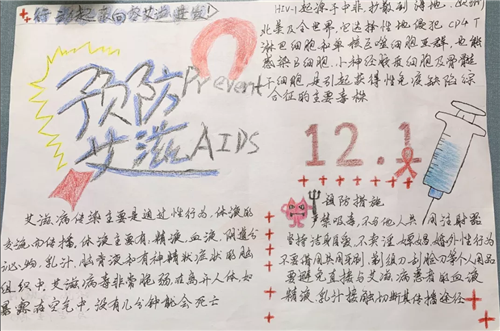 行动起来向零艾滋进发!
预防
Prevent
艾滋
AIDS
HIV-1起源于中非,扩散到海地、欧洲
北美及全世界,它选择性地侵犯CD4T
淋巴细胞和单核巨噬细胞亚群,也能
感染B细胞、小神经胶质细胞及骨髓
干细胞,是引起获得性免疫缺陷综
合征的主要毒株
12.1
艾滋病传染主要是通过性行为,体液的
交流而传播,体液主要有:精液,血液,阴道分
泌物,乳汁,脑脊液和有神经症状的脑
组织中,艾滋病毒非常脆弱在离开人体,如
暴露在空气中,没有几分钟就会死亡
预防措施
严禁吸毒,不与他人共用注射器
坚持洁身自爱,不卖淫嫖娼,婚外性行为
不要借用共用牙刷,剃须刀,刮脸刀等个人用品
要避免直接与艾滋病患者的血液
精液,乳汁接触切断其传播途径